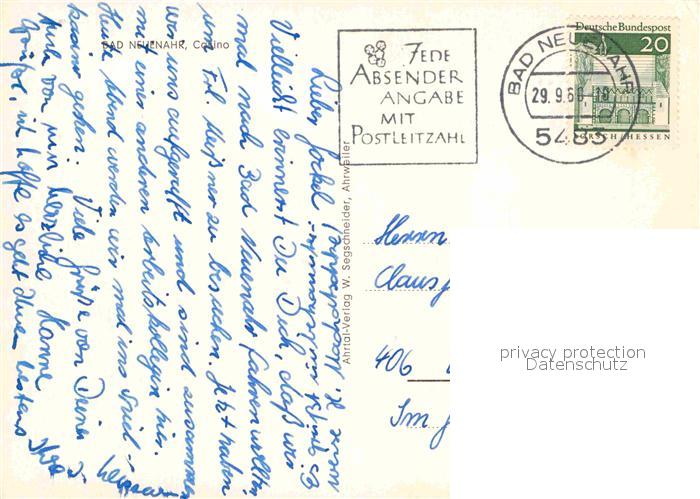 BAD NEUENAHR, Casino
JEDE
ABSENDER
ANGABE
MIT
POSTLEITZAHL
BAD NEUENAHR
29. 9. 6
5483
Deutsche Bundespost
20
LORSCH / HESSEN
Ahrtal-Verlag W. Segschneider, Ahrweiler
Lieber Jockel!
Vielleicht erinnerst Du Dich, daß wir
mal nach Bad Neuenahr fahren wollten
um Frl. Meißner zu besuchen. Jetzt haben
wir uns aufgerafft und sind zusammen
mit einer anderen Arbeitskollegin hier.
Heute Abend werden wir mal ins Spiel-
kasino gehen. Viele Grüße von Deiner
Hanne
Auch von mir herzliche
Grüße, ich hoffe es geht Ihnen bestens
Herrn
Claus
406
Im
privacy protection
Datenschutz